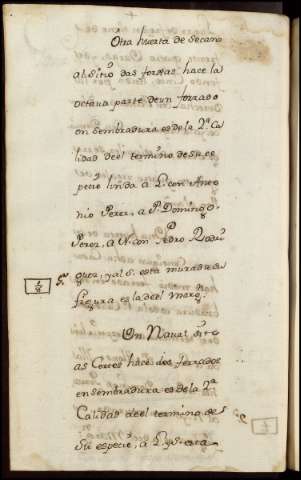 Otra huerta de Secano
al Sitio das forxas hace la
octava parte de un ferrado
en Sembradura es de la 2ª Ca
lidad del termino de su es
pecie linda a L. con Anto
nio Perez, a P. Domingo
Perez, a N. con Pedro Rodri
guez, y al S. esta murada su
figura es la del marg.
Un Naval sitto
as Cortes hace dos ferrados
en sembradura es de la 2ª
Calidad del termino de
su especie, a L. y S. esta